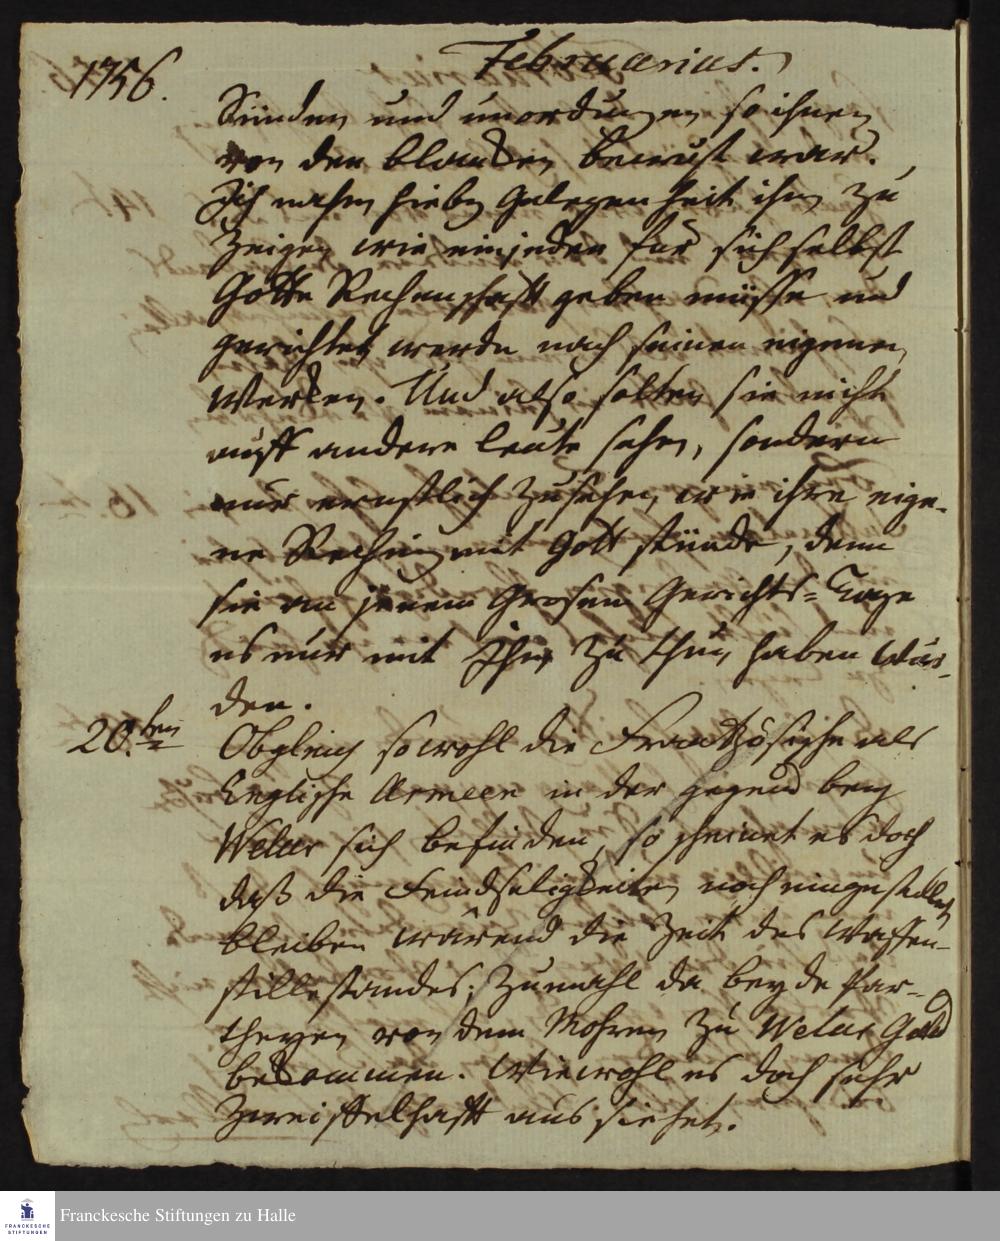 1756. Februarius.
Sünden und unordnungen so ihnen
von den blanken bewust war.
Ich nahm hieby gelegenheit ihm zu
Zeigen wie ein jeder für sich selbst
Gotte Rechenschafft geben müsse und
gerichtet werde nach seinen eigenen
Werken. Und also solten sie nicht
auff andere leute sehen, sondern
nur ernstlich zusehen, wie ihre eige-
ne Rechnung mit Gott stünde, denn
sie an jenem Grosen Gerichts-Tage
es nur mit Ihm zu thun haben wür-
den.
20.ten Obgleich sowohl die Frantzösische als
Englische Armeen in der gegend bey
Welur sich befinden, so scheinet es doch
daß die Feindseligkeiten noch eingestellet
bleiben wärend die Zeit des Waffen-
stillestandes; Zumahl da beyde Par-
theyen von dem Mohren zu Welur Geld
bekommen. Wiewohl es doch sehr
Zweiffelhafft aus siehet.
Franckesche Stiftungen zu Halle
FRANCKESCHE
STIFTUNGEN